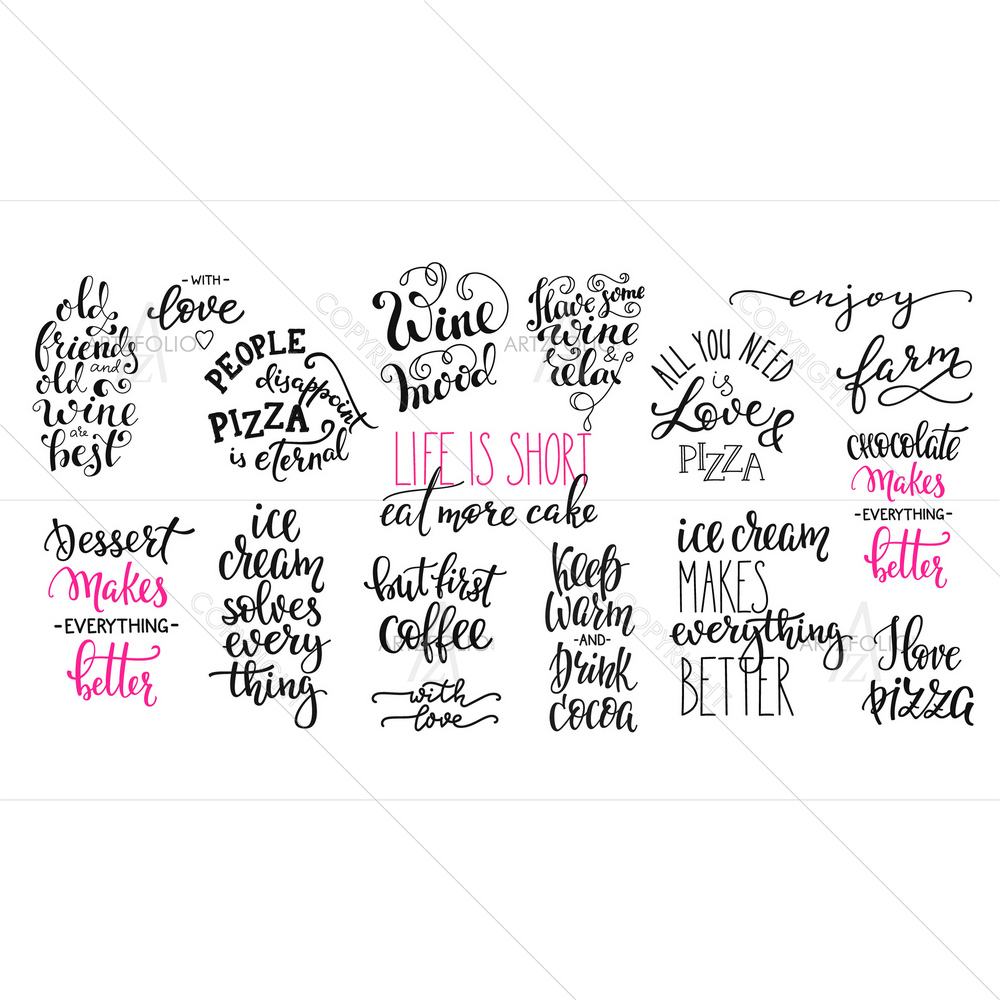 old
friends
and
old
wine
are
best
-WITH-
love
PEOPLE
disappoint
PIZZA
is eternal
Wine
mood
Have some
wine
&
relax
ALL YOU NEED
is
Love &
PIZZA
enjoy
farm
chocolate
Makes
-EVERYTHING-
better
LIFE IS SHORT
eat more cake
Dessert
Makes
-EVERYTHING-
better
ice
cream
solves
every
thing
but first
coffee
with
love
Keep
Warm
-AND-
Drink
cocoa
ice cream
MAKES
everything
BETTER
I love
pizza
ARTZFOLIO
ARTZFOLIO
ARTZFOLIO
ARTZFOLIO
COPYRIGHT
COPYRIGHT
COPYRIGHT
COPYRIGHT